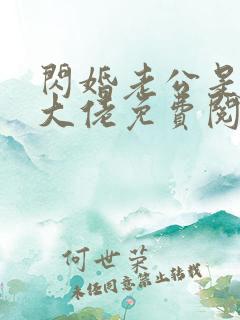 閃婚老公是
大佬免費閱
何世荣
未经同意禁止转载